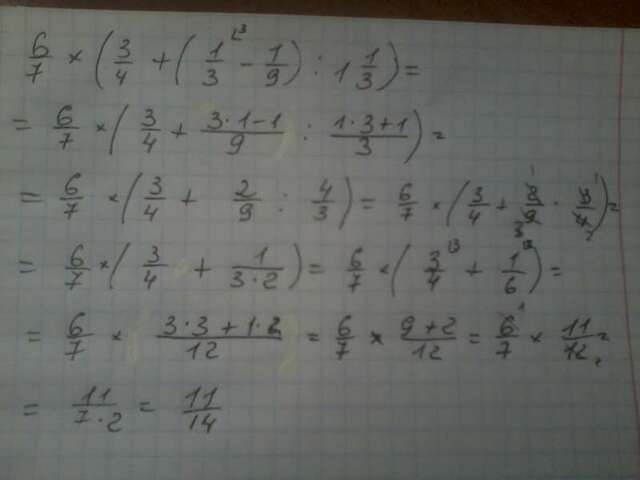 6/7 × (3/4 + (1/3 - 1/9) : 1 1/3) =
= 6/7 × (3/4 + (3·1-1)/9 : (1·3+1)/3) =
= 6/7 × (3/4 + 2/9 : 4/3) = 6/7 × (3/4 + 2/9 · 3/4) =
= 6/7 × (3/4 + 1/(3·2)) = 6/7 × (3/4 + 1/6) =
= 6/7 × (3·3+1·2)/12 = 6/7 × (9+2)/12 = 6/7 × 11/12 =
= 11/(7·2) = 11/14